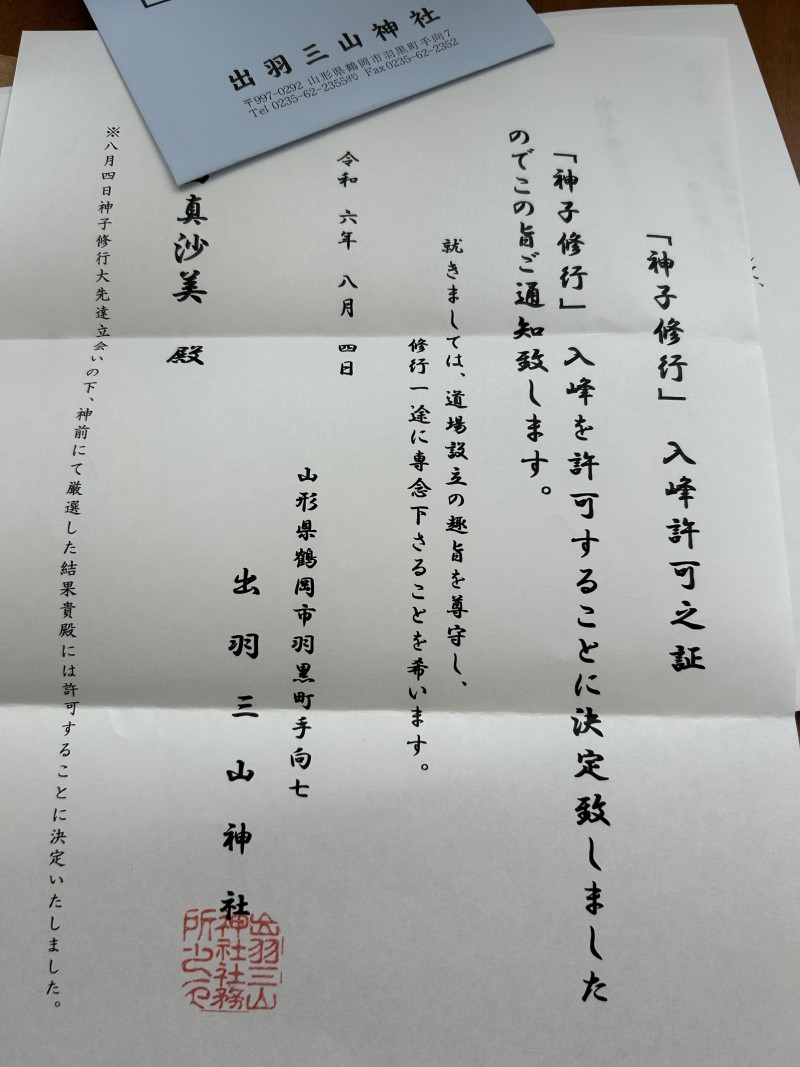 出羽三山神社
〒997-0292 山形県鶴岡市羽黒町手向7
Tel 0235-62-2355㈹ Fax0235-62-2352
「神子修行」 入峰許可之証
「神子修行」入峰を許可することに決定致しました
のでこの旨ご通知致します。
就きましては、道場設立の趣旨を尊守し、
修行一途に専念下さることを希います。
令和 六年 八月 四日
山形県鶴岡市羽黒町手向七
出羽三山神社
出羽三山
神社社務
所
真沙美 殿
※八月四日神子修行大先達立会いの下、神前にて厳選した結果貴殿には許可することに決定いたしました。